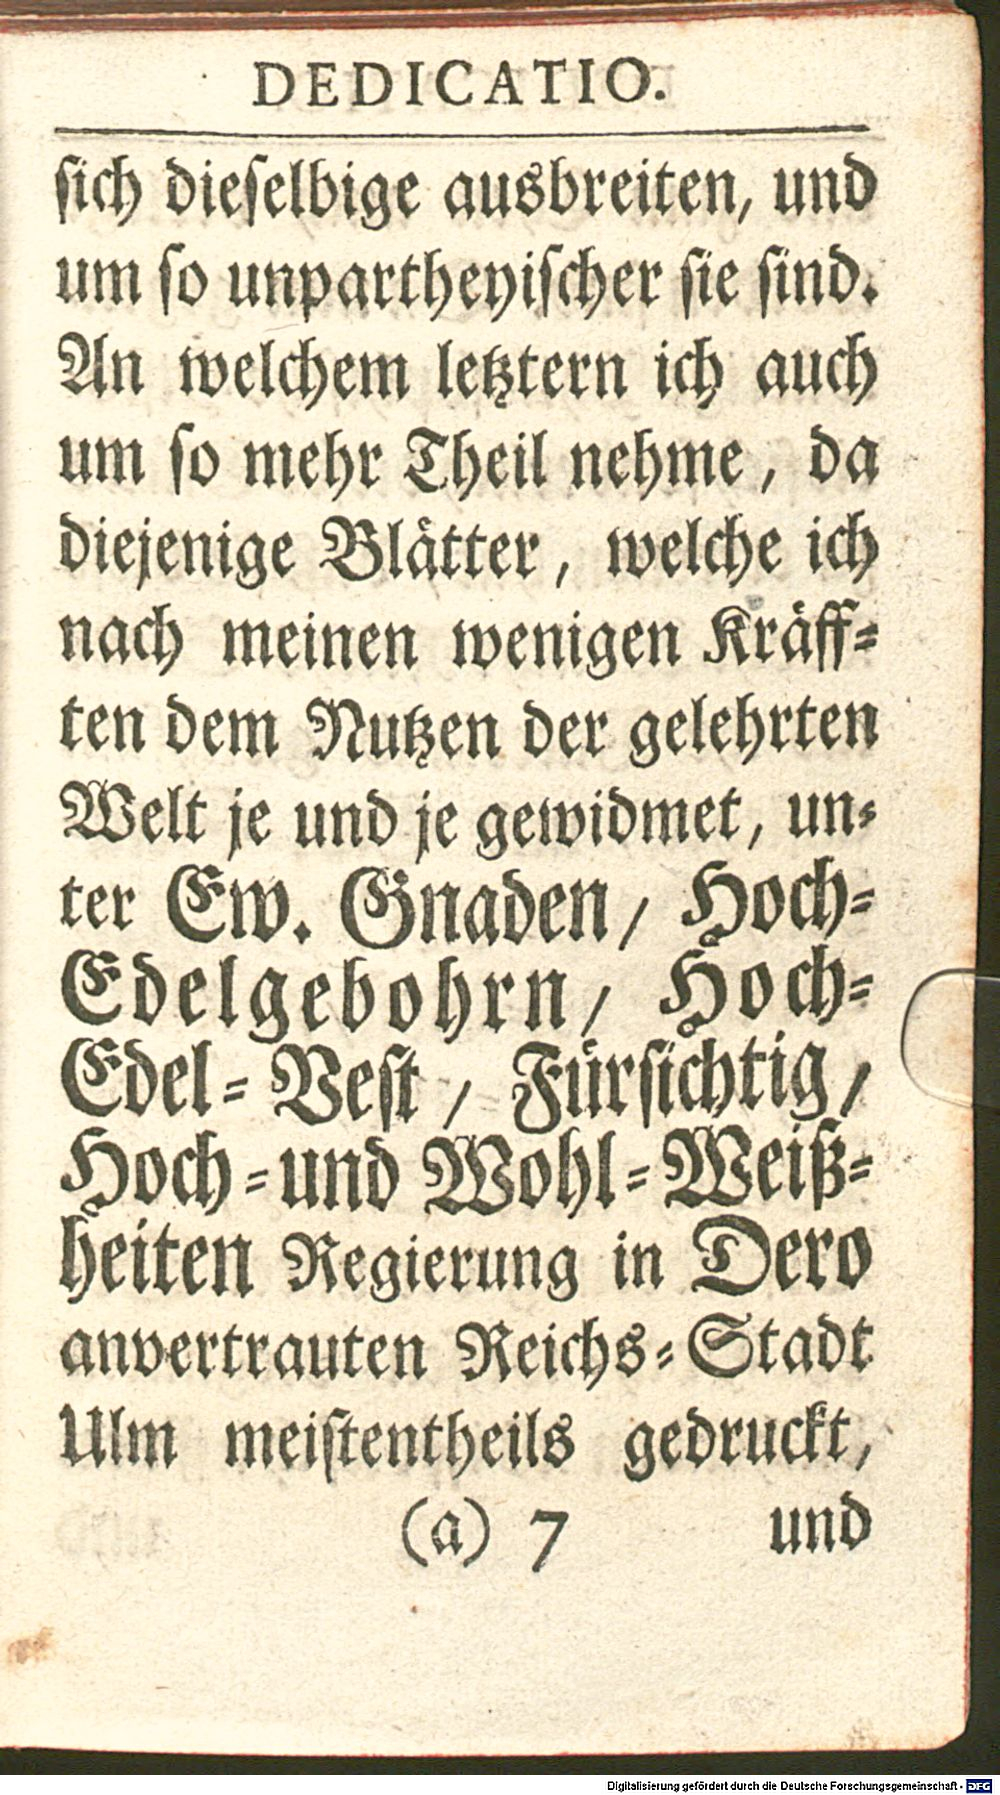 DEDICATIO.
ſich dieſelbige ausbreiten, und
um ſo unpartheyiſcher ſie ſind.
An welchem letztern ich auch
um ſo mehr Theil nehme, da
diejenige Blätter, welche ich
nach meinen wenigen Kräff⸗
ten dem Nutzen der gelehrten
Welt je und je gewidmet, un⸗
ter Ew. Gnaden/ Hoch⸗
Edelgebohrn/ Hoch⸗
Edel⸗Veſt/ Fürſichtig/
Hoch⸗und Wohl⸗Weiß⸗
heiten Regierung in Dero
anvertrauten Reichs⸗Stadt
Ulm meiſtentheils gedruckt,
(a) 7 und
Digitalisierung gefördert durch die Deutsche Forschungsgemeinschaft - DFG